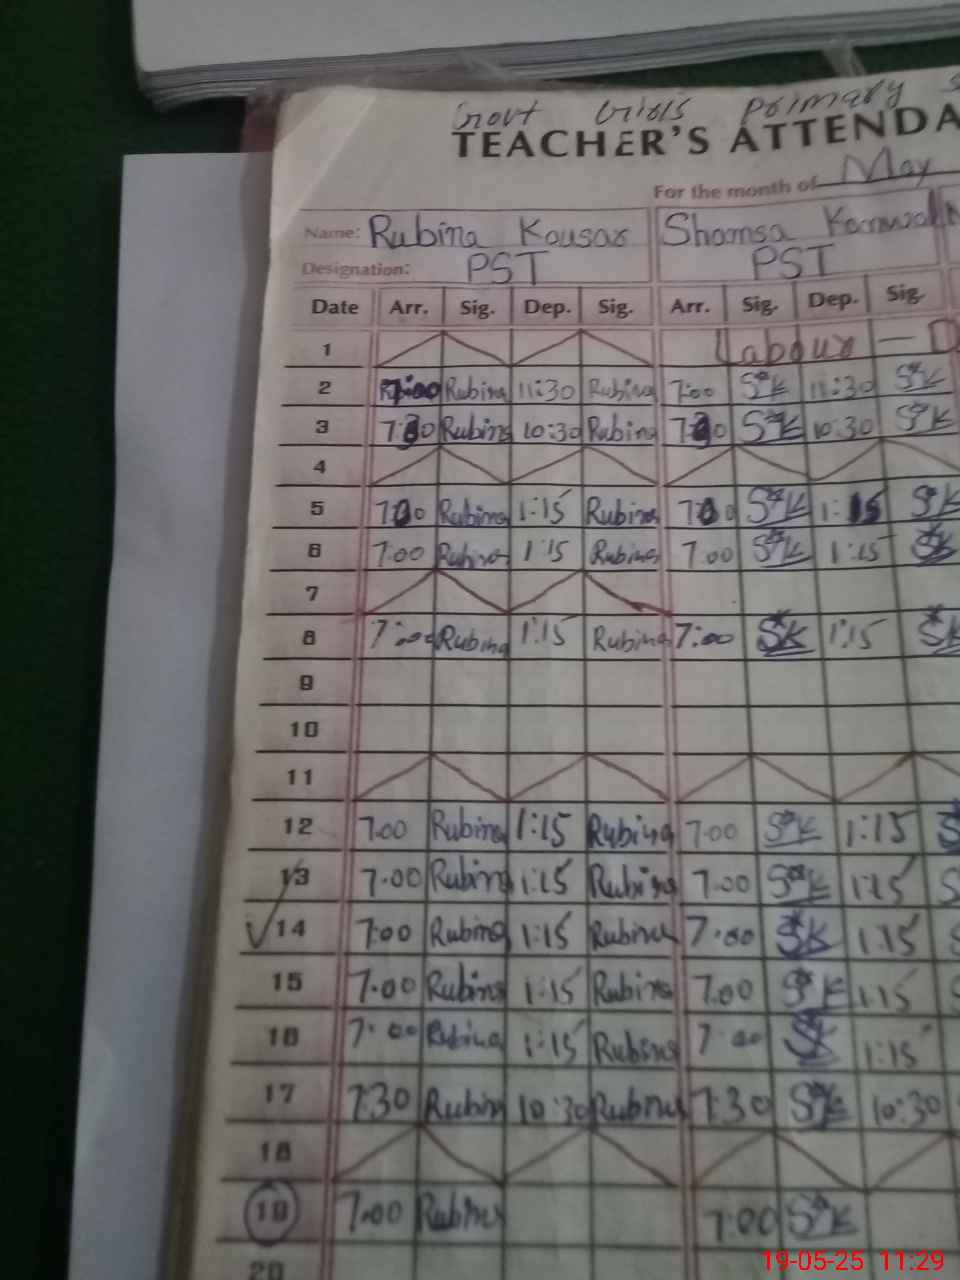 Govt Girls Primary S
TEACHER'S ATTENDA
For the month of May
Name: Rubina Kousar Shamsa Kanwal
Designation: PST PST
Date Arr. Sig. Dep. Sig. Arr. Sig. Dep. Sig.
1 Labour — D
2 7:00 Rubina 11:30 Rubina 7:00 SK 11:30 SK
3 7:30 Rubina 10:30 Rubina 7:30 SK 10:30 SK
4
5 7:00 Rubina 1:15 Rubina 7:00 SK 1:15 SK
6 7:00 Rubina 1:15 Rubina 7:00 SK 1:15 SK
7
8 7:00 Rubina 1:15 Rubina 7:00 SK 1:15 SK
9
10
11
12 7:00 Rubina 1:15 Rubina 7:00 SK 1:15 S
13 7:00 Rubina 1:15 Rubina 7:00 SK 1:15 S
14 7:00 Rubina 1:15 Rubina 7:00 SK 1:15 S
15 7:00 Rubina 1:15 Rubina 7:00 SK 1:15 S
16 7:00 Rubina 1:15 Rubina 7:00 SK 1:15
17 7:30 Rubina 10:30 Rubina 7:30 SK 10:30
18
19 7:00 Rubina 7:00 SK
20
19-05-25 11:29